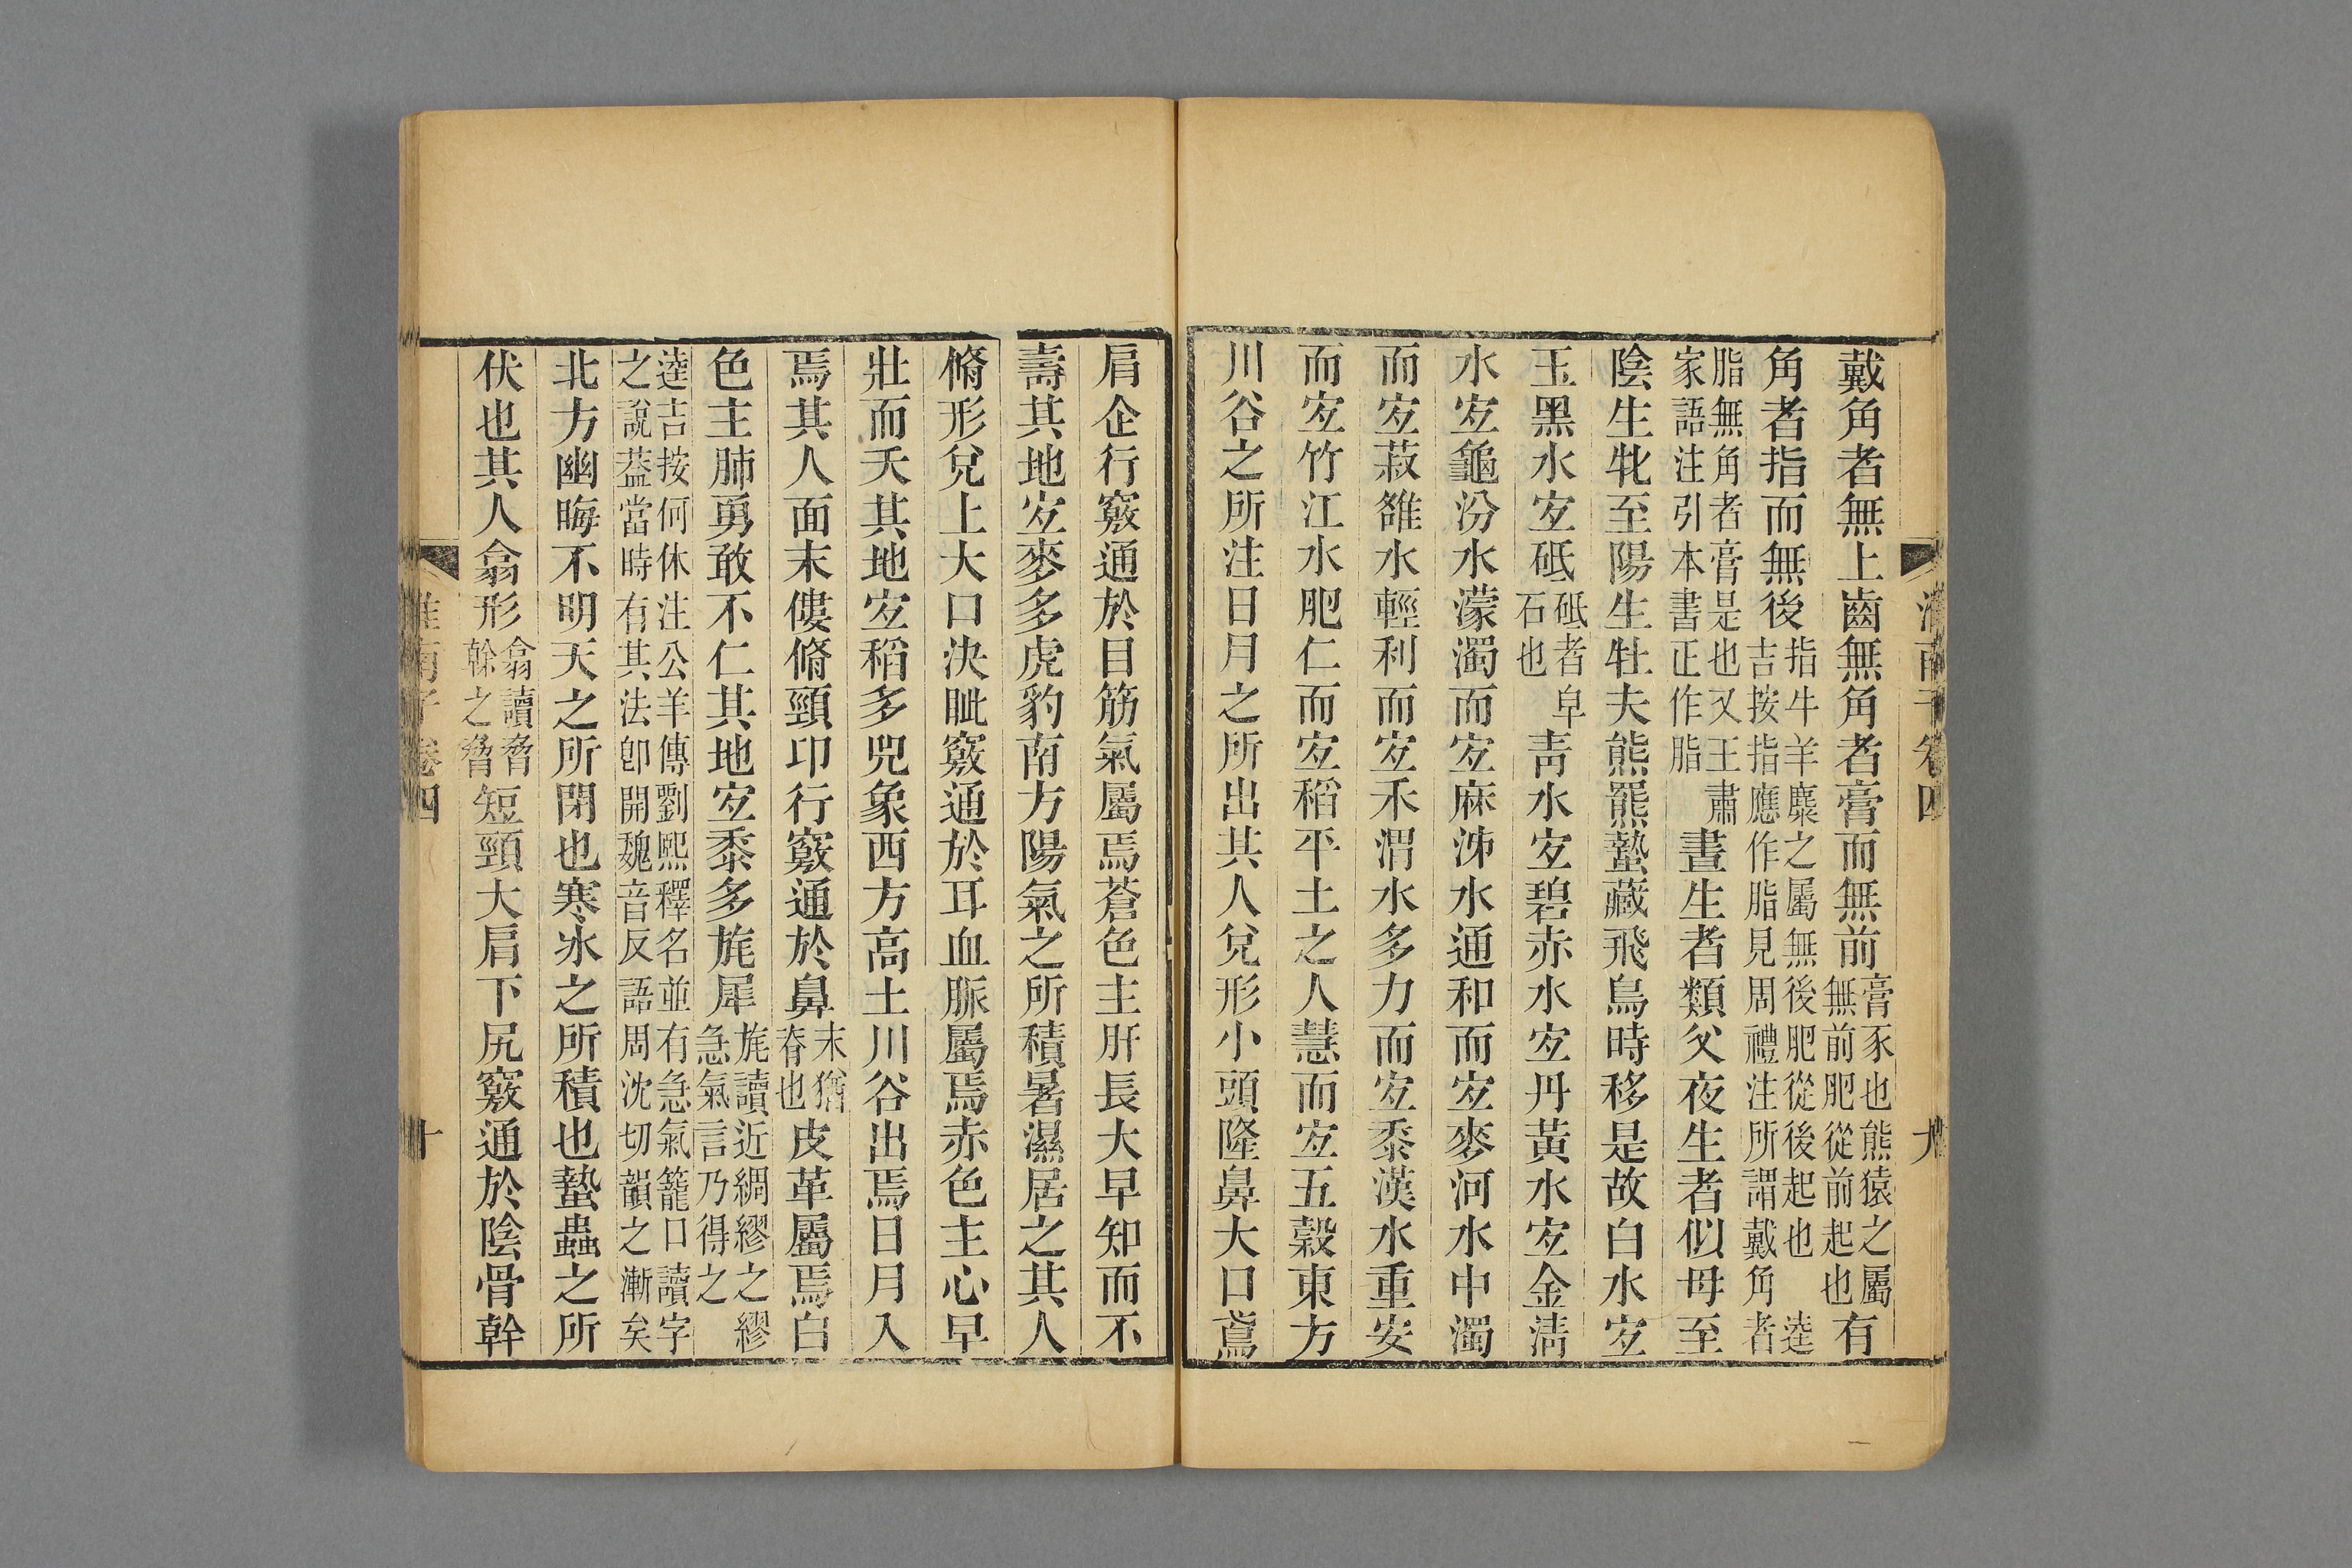 淮南子卷四 九
戴角者無上齒無角者膏而無前膏豕也熊猿之屬無前肥從前起也有
角者指而無後指牛羊麋之屬無後肥從後起也 逵吉按指應作脂見周禮注所謂戴角者
脂無角者膏是也又王肅家語注引本書正作脂晝生者類父夜生者似母至
陰生牝至陽生牡夫熊羆蟄藏飛鳥時移是故白水宐
玉黑水宐砥砥者皁石也青水宐碧赤水宐丹黃水宐金清
水宐龜汾水濛濁而宐麻泲水通和而宐麥河水中濁
而宐菽雒水輕利而宐禾渭水多力而宐黍漢水重安
而宐竹江水肥仁而宐稻平土之人慧而宐五穀東方
川谷之所注日月之所出其人兌形小頭隆鼻大口鳶
肩企行竅通於目筋氣屬焉蒼色主肝長大早知而不
壽其地宐麥多虎豹南方陽氣之所積暑濕居之其人
脩形兌上大口決眦竅通於耳血脈屬焉赤色主心早
壯而夭其地宐稻多兕象西方高土川谷出焉日月入
焉其人面末僂脩頸卬行竅通於鼻末猶脊也皮革屬焉白
色主肺勇敢不仁其地宐黍多旄犀旄讀近綢繆之繆急氣言乃得之
逵吉按何休注公羊傳劉熙釋名並有急氣籠口讀字之說葢當時有其法卽開魏音反語周沈切韻之漸矣
北方幽晦不明天之所閉也寒冰之所積也蟄蟲之所
伏也其人翕形翕讀脅榦之脅短頸大肩下尻竅通於陰骨幹
淮南子卷四 十